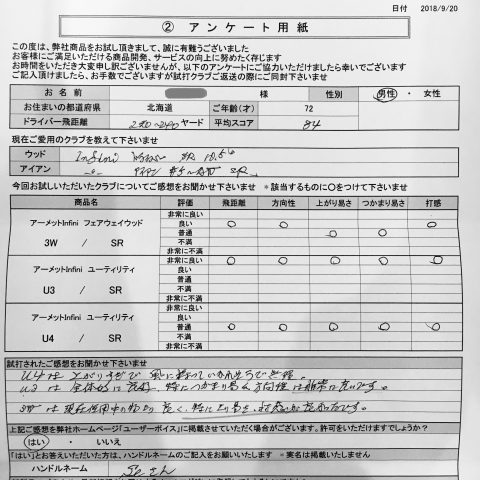 日付 2018/9/20
② アンケート用紙
この度は、弊社商品をお試し頂きまして、誠に有難うございました
お客様にご満足いただける商品開発、サービスの向上に努めたく存じます
お時間をいただき大変申し訳ございませんが、以下のアンケートにご協力いただけましたら幸いでございます
ご記入頂けましたら、お手数でございますが試打クラブご返送の際にご同封下さいませ
お名前 様 性別 男性 ・ 女性
お住まいの都道府県 北海道 ご年齢(才) 72
ドライバー飛距離 230~240 ヤード 平均スコア 84
現在ご愛用のクラブを教えて下さいませ
ウッド Infini SR 10.5°
アイアン SR
今回お試しいただいたクラブについてご感想をお聞かせ下さいませ *該当するものに〇をつけて下さいませ
商品名 評価 飛距離 方向性 上がり易さ つかまり易さ 打感
アーメットInfini フェアウェイウッド
3W / SR
非常に良い
良い 〇 〇 〇
普通 〇 〇
不満
非常に不満
アーメットInfini ユーティリティ
U3 / SR
非常に良い 〇 〇 〇 〇 〇
良い
普通
不満
非常に不満
アーメットInfini ユーティリティ
U4 / SR
非常に良い
良い
普通 〇 〇 〇 〇 〇
不満
非常に不満
試打されたご感想をお聞かせ下さいませ
U4は
U3は全体的に良好、特につかまり易く方向性は非常に良いです。
3Wは現在使用中の
上記ご感想を弊社ホームページ「ユーザーボイス」に掲載させていただく場合がございます。許可をいただけますでしょうか?
はい ・ いいえ
「はい」とお答えいただいた方は、ハンドルネームのご記入をお願いいたします *実名は掲載いたしません
ハンドルネーム